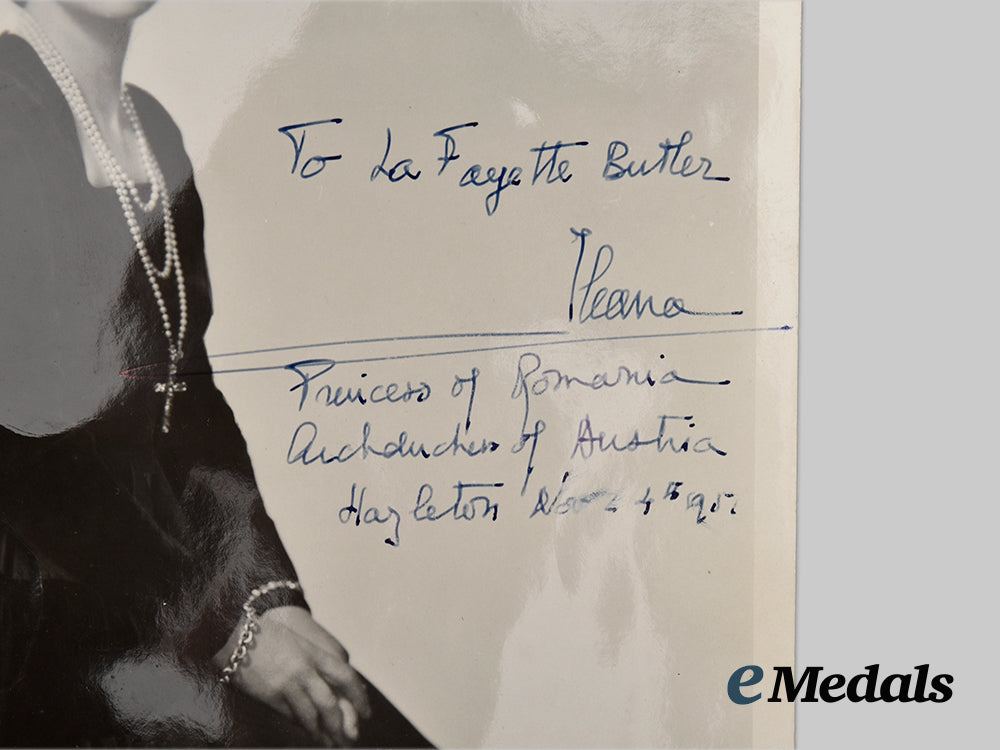 To La Fayette Butler
Ileana
Princess of Romania
Archduchess of Austria
Hazleton Nov
eMedals